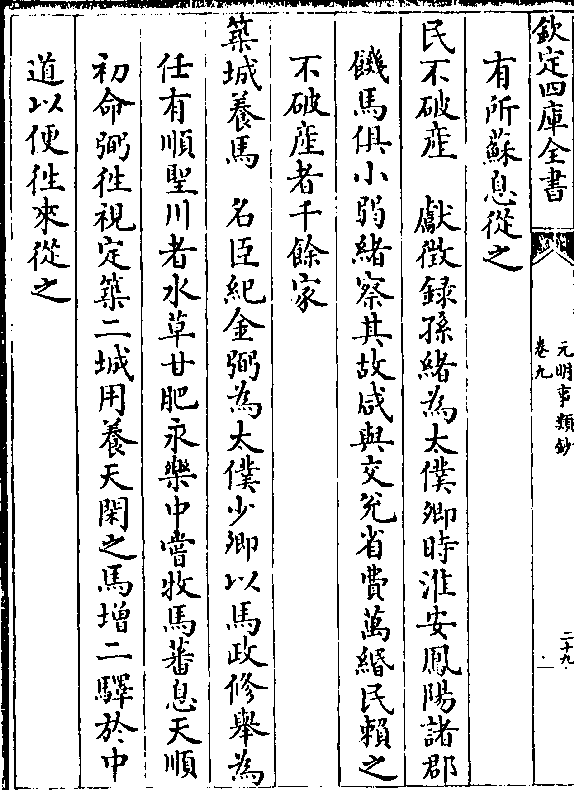 欽定四庫全書
元明事類鈔
卷九
二十九
有所蘇息從之
民不破産　獻徴録孫緒為太僕卿時淮安鳳陽諸郡
饑馬俱小弱緒察其故咸與交兊省費萬緡民賴之
不破産者千餘家
築城養馬　名臣紀金弼為太僕少卿以馬政修舉為
任有順聖川者水草甘肥永樂中嘗牧馬蕃息天順
初命弼徃視定築二城用養天閑之馬增二驛於中
道以便徃來從之